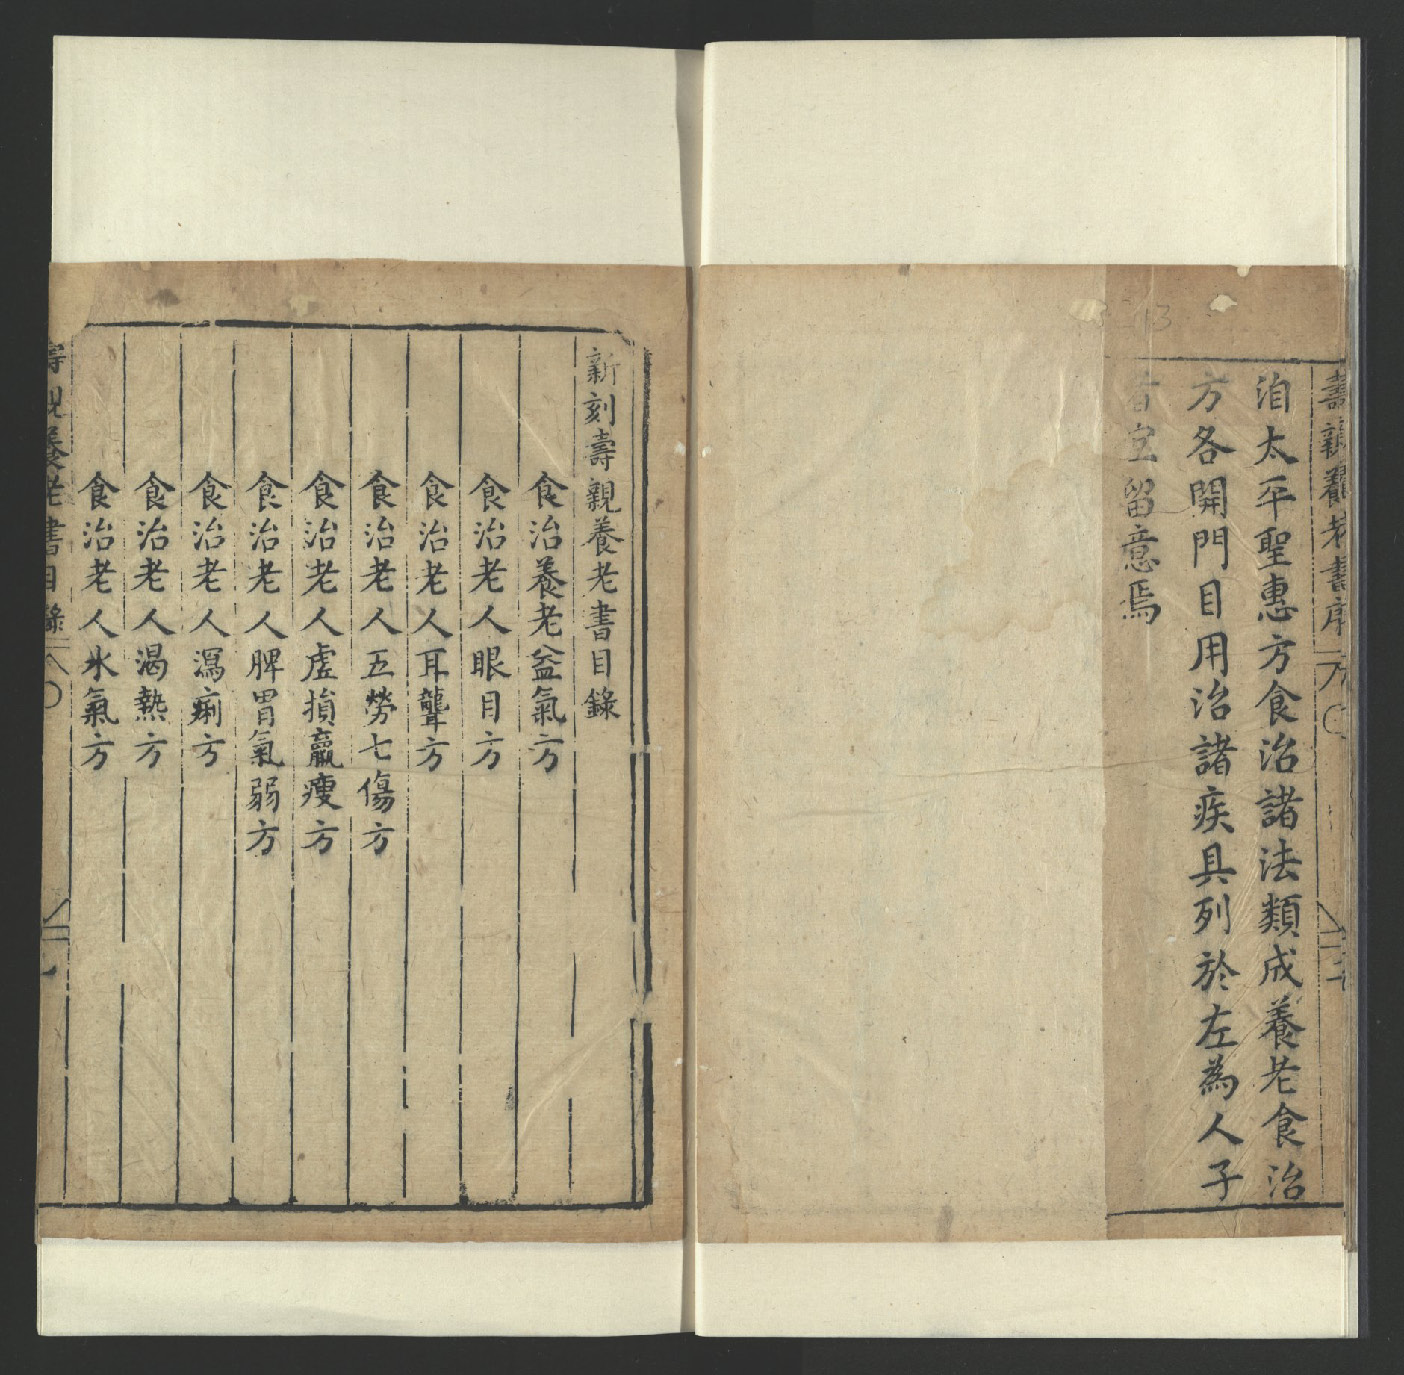 壽親養老書序
洎太平聖惠方食治諸法類成養老食治
方各開門目用治諸疾具列於左為人子
者宜留意焉
新刻壽親養老書目錄
食治養老益氣方
食治老人眼目方
食治老人耳聾方
食治老人五勞七傷方
食治老人虛損羸瘦方
食治老人脾胃氣弱方
食治老人瀉痢方
食治老人渴熱方
食治老人水氣方
壽親養老書目錄